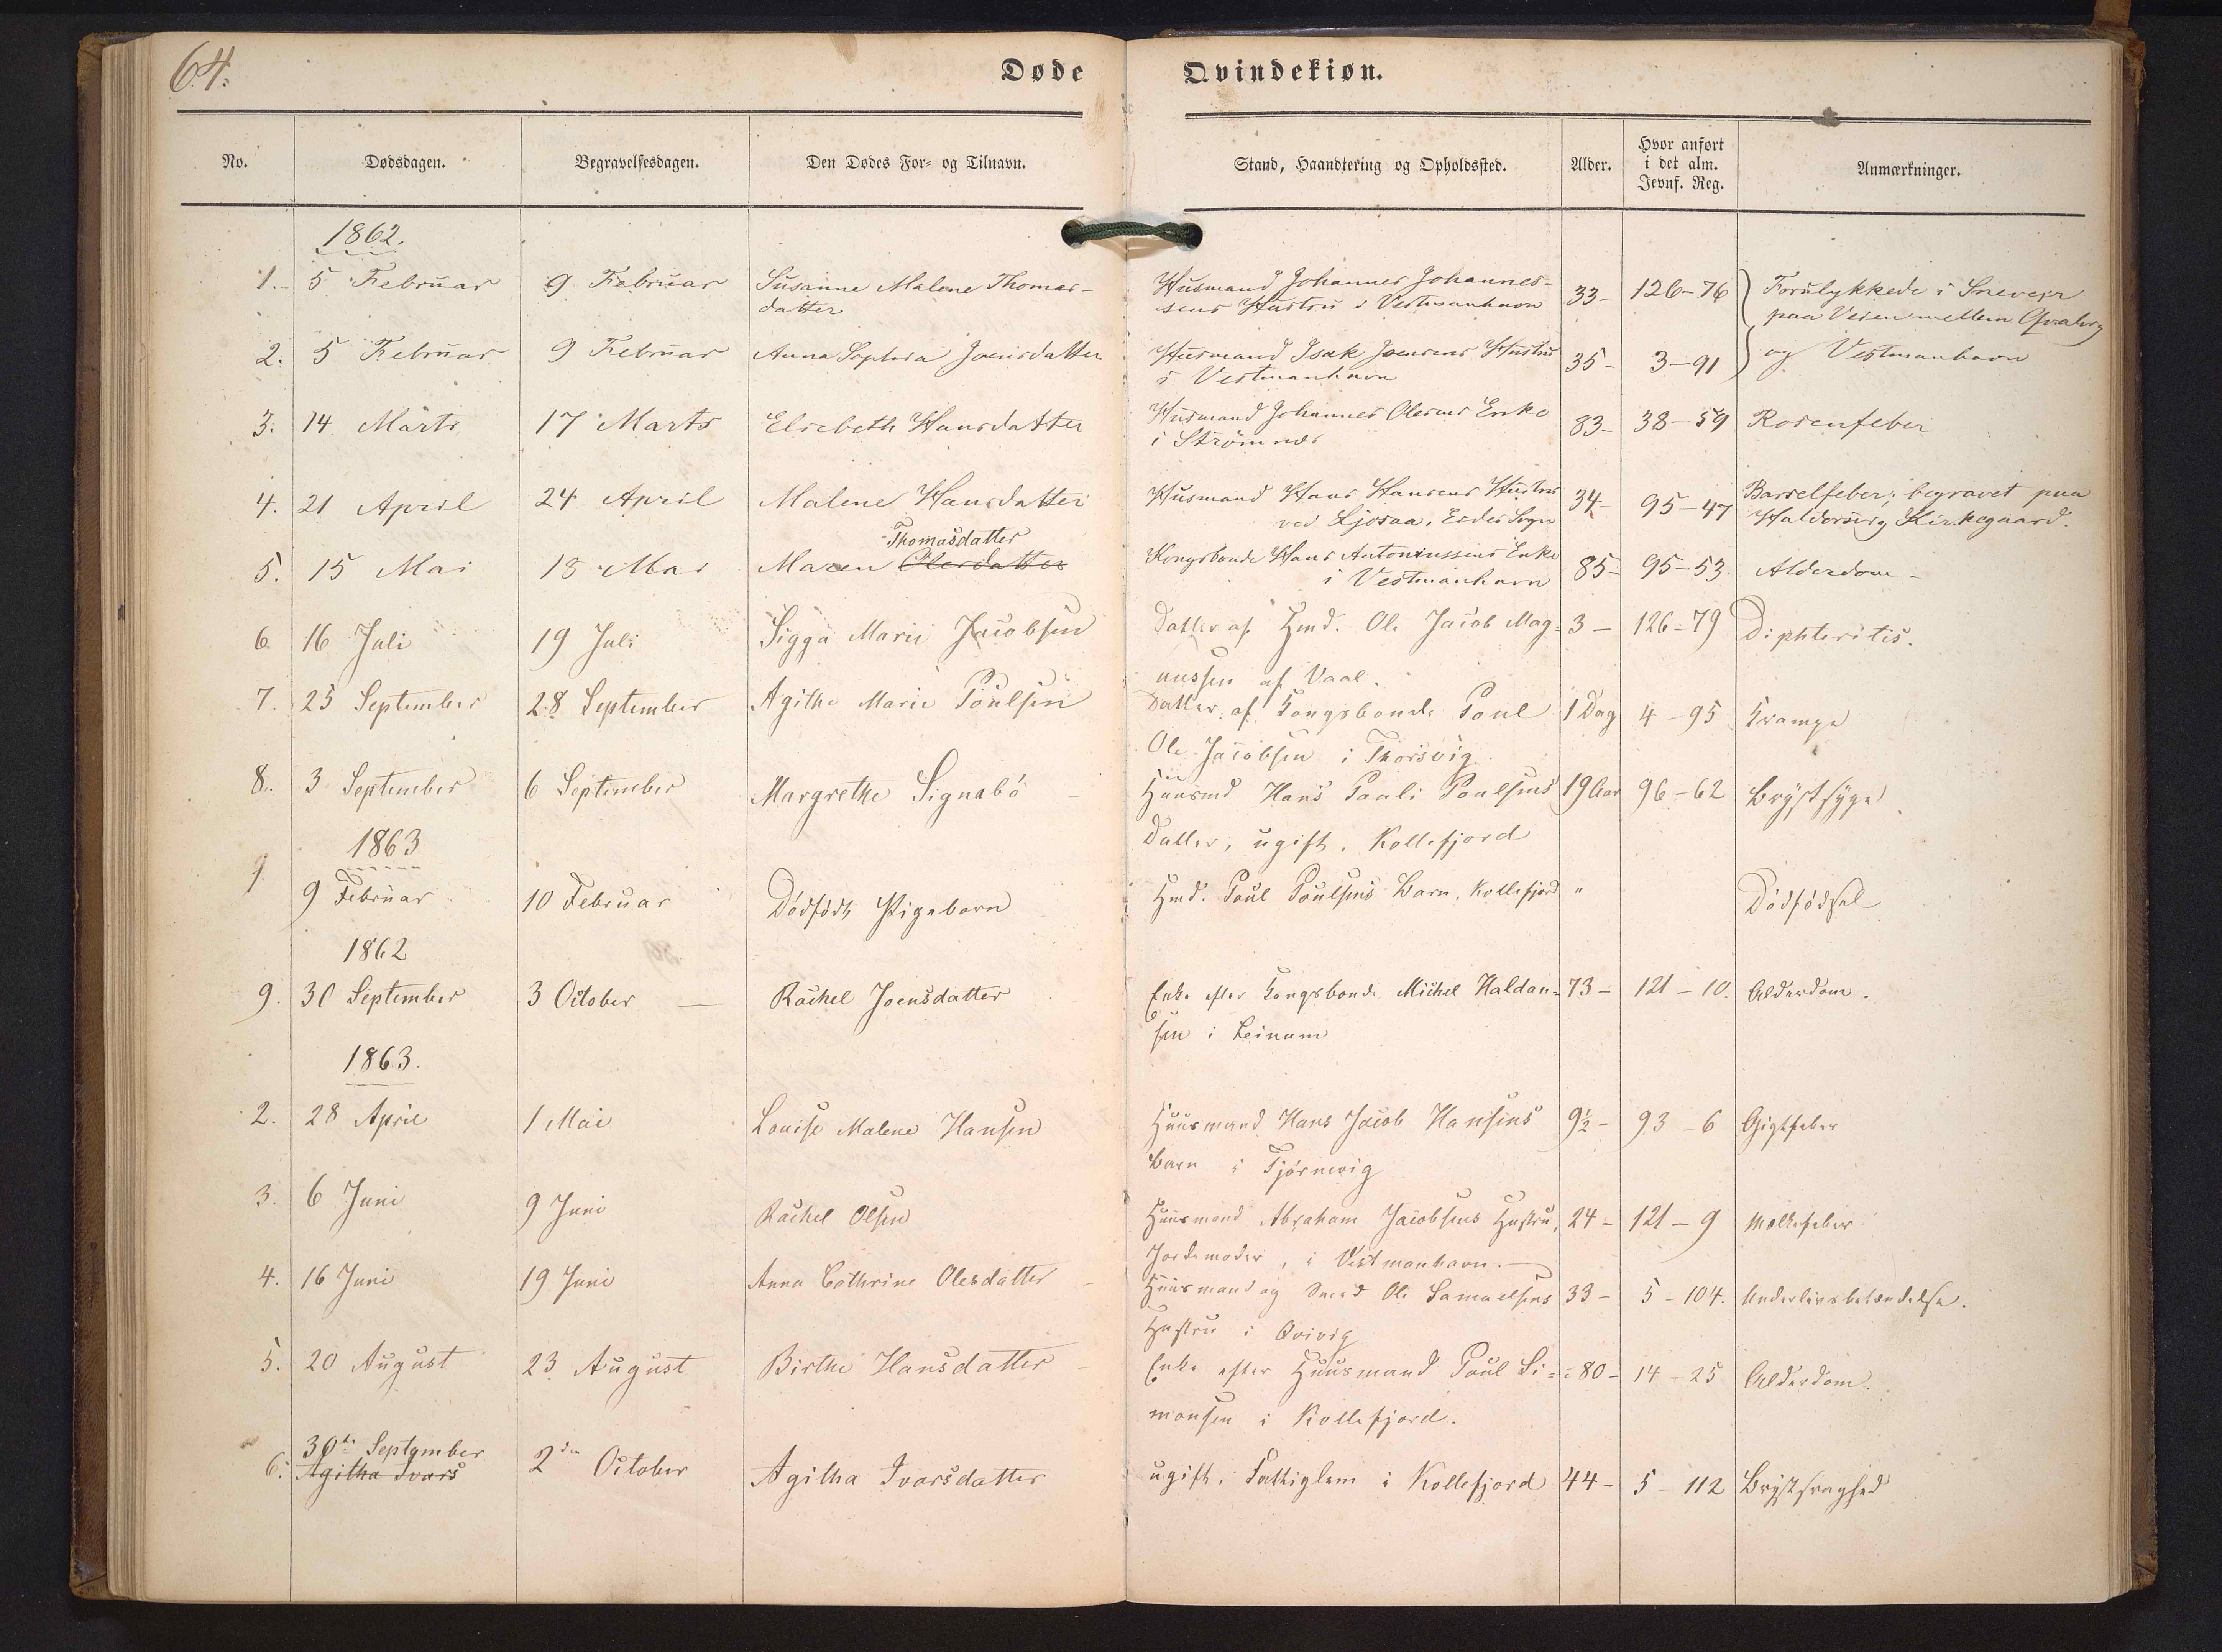 64.
Døde Qvindekiøn.
No. Dødsdagen. Begravelsesdagen. Den Dødes For- og Tilnavn. Stand, Haandtering og Opholdssted. Alder. Hvor anført i det alm. Jevnf. Reg. Anmærkninger.
1862.
1. 5 Februar 9 Februar Susanne Malene Thomas- Husmand Johannes Johannes- 33- 126-76 Forulykkede i Sneveir
datter sens Hustru i Vestmanhavn paa Veien mellem Qvalvig
2. 5 Februar 9 Februar Anna Sophia Joensdatter Husmand Isak Joensens Hustru 35- 3-91 og Vestmanhavn
i Vestmanhavn
3. 14 Marts 17 Marts Elsebeth Hansdatter Husmand Johannes Olesens Enke 83- 38-59 Rosenfeber
i Strømnæs
4. 21 April 24 April Malene Hansdatter Husmand Hans Hansens Hustru 34- 95-47 Barselfeber; begravet paa
ved Ljosaa, Eides Sogn Haldorsvig Kirkegaard.
Thomasdatter
5. 15 Mai 18 Mai Maren Olesdatter Kongsbonde Hans Antoniussens Enke 85- 95-53. Alderdom-
i Vestmanhavn
6. 16 Juli 19 Juli Sigga Marie Jacobsen Datter af Hmd. Ole Jacob Mag- 3- 126-79 Diphteritis.
nussen af Vaal.
7. 25 September 28 September Agithe Marie Poulsen Datter af Kongsbonde Poul 1 Dag 4-95 Krampe
Ole Jacobsen i Thorsvig
8. 3 September 6 September Margrethe Signabö Huusmd Hans Pauli Poulsens 19 Aar 96-62 Brystsyge
Datter, ugift, Kollefjord
1863
9. 9 Februar 10 Februar Dødfødt Pigebarn Hmd. Poul Poulsens Barn, Kollefjord " Dødfødsel
1862
9. 30 September 3 October Rachel Joensdatter Enke efter Kongsbonde Michel Haldan- 73- 121-10. Alderdom.
sen i Leinum
1863.
2. 28 April 1 Mai Louise Malene Hansen Huusmand Hans Jacob Hansens 9½- 93-6 Gigtfeber
Barn i Tjørnevig
3. 6 Juni 9 Juni Rachel Olsen Huusmand Abraham Jacobsens Hustru, 24- 121-9 Mælkefeber
Jordemoder, i Vestmanhavn.
4. 16 Juni 19 Juni Anna Cathrine Olesdatter Huusmand og Smed Ole Samuelsens 33- 5-104. Underlivsbetændelse.
Hustru i Qvivig
5. 20 August 23 August Birthe Hansdatter Enke efter Huusmand Poul Si- 80- 14-25 Alderdom.
monsen i Kollefjord.
30te September
6. Agitha Ivars 2den October Agitha Ivarsdatter ugift, Fattiglem i Kollefjord 44- 5-112 Brystsvaghed